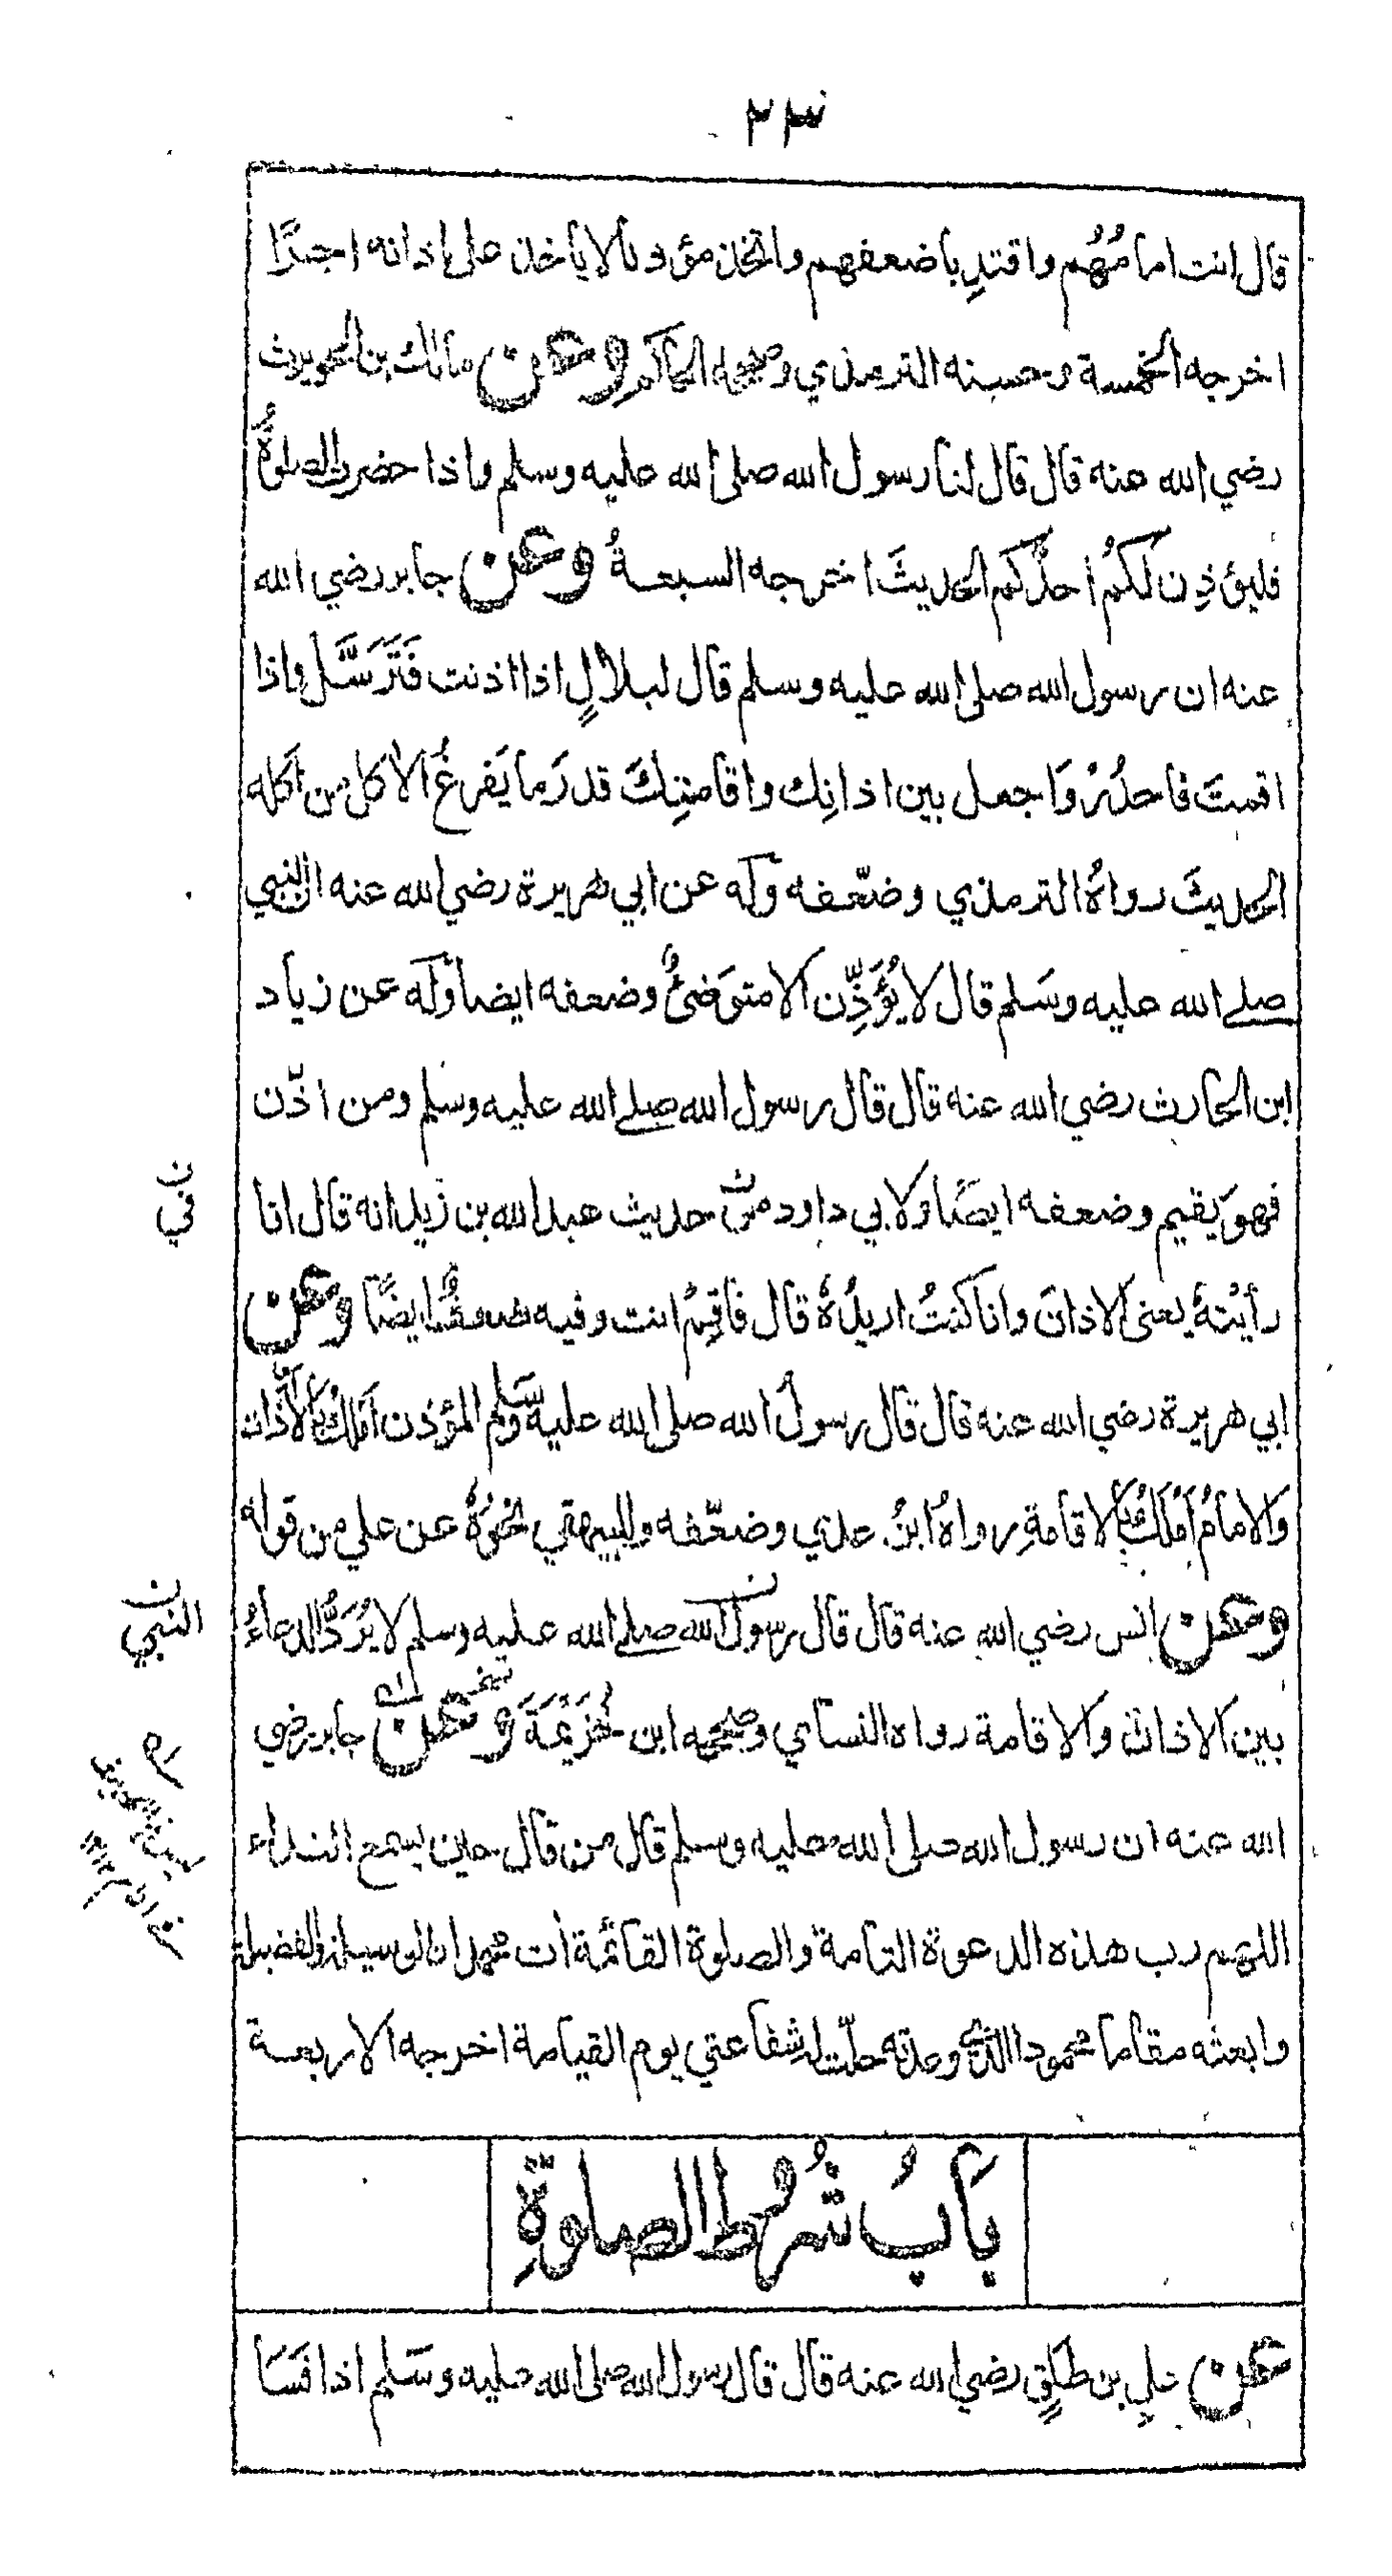 ٢٣
قال انت امامُهُم واقتدِ باضعفهم واتخذ مؤذنا لا يأخذ على اذانه اجرًا
اخرجه الخمسة وحسنه الترمذي وصححه الحاكم وعن مالك بن الحويرث
رضي الله عنه قال قال لنا رسول الله صلى الله عليه وسلم واذا حضرت الصلوةُ
فليؤذِن لكُم احدُكم الحديثَ اخرجه السبعةُ وعن جابر رضي الله
عنه ان رسول الله صلى الله عليه وسلم قال لبلالٍ اذا اذنت فَتَرَسَّل واذا
اقمتَ فاحدُرْ وَاجعل بين اذانِك واقامتِكَ قدرَ ما يَفرغُ الاكل من اكله
الحديثَ رواهُ الترمذي وضعّفه وله عن ابي هريرة رضي الله عنه ان النبي
صلے الله عليه وسَلم قال لا يُؤَذِّن الا متوَضئٌ وضعفه ايضا وله عن زياد
ابن الحارث رضي الله عنه قال قال رسول الله صلے الله عليه وسلم ومن اذّن
فهوَ يقيم وضعفه ايضًا ولابي داود من حديث عبد الله بن زيد انه قال انا
رأيتهُ يعنى الاذانَ وانا كنتُ اريدُهُ قال فاقِمْ انت وفيه ضعفٌ ايضًا وعن
ابي هريرة رضي الله عنه قال قال رسولُ الله صلى الله عليه وسَلم المؤذن املكُ بالاذان
والامامُ املَكُ بالاقامةِ رواهُ ابنُ عدي وضعّفه وللبيهقي نحوُهُ عن علي من قوله
وعن انس رضي الله عنه قال قال رسول الله صلے الله عليه وسلم لا يُرَدُّ الدعاءُ
بين الاذان والاقامة رواه النسائي وصححه ابن خُزَيْمَةَ وعن جابر رضي
الله عنه ان رسول الله صلى الله عليه وسلم قال من قال حين يسمع النداء
اللهم رب هذه الدعوة التامة والصلوة القائمة اٰت محمدا ن الوسيلة والفضيلة
وابعثه مقاما محمودا الذي وعدته حلّت له شفاعتي يوم القيامة اخرجه الاربعة
بَابُ شُرُوط الصلوةِ
عن علي بن طلقٍ رضي الله عنه قال قال رسول الله صلى الله عليه وسَلم اذا فَسَا
ن
في
ن
النبي